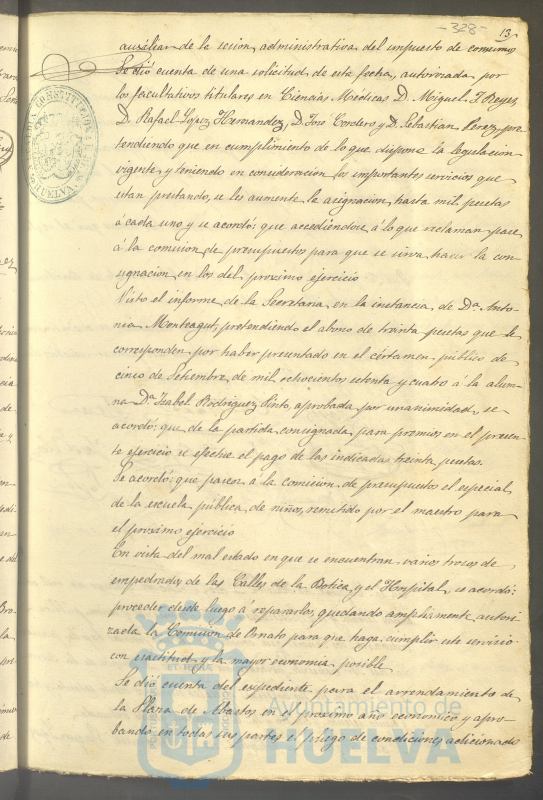 -328-
13
auxiliar de la secion administrativa del impuesto de consumos
Se dió cuenta de una solicitud de esta fecha, autorizada por
los facultativos titulares en Ciencias Médicas D. Miguel T. Reyes,
D. Rafael Lopez Hernandez, D. José Cordero y D. Sebastian Perez, pre-
tendiendo que en cumplimiento de lo que dispone la legislacion
vigente, y teniendo en consideracion los importantes servicios que
estan prestando, se les aumente la asignacion hasta mil pesetas
á cada uno y se acordó: que accediendose á lo que reclaman pase
á la comision de presupuestos para que se sirva hacer la con-
signacion en los del proximo ejercicio
Visto el informe de la Secretaria en la instancia de Dª. Anto-
nia Monteagut, pretendiendo el abono de treinta pesetas que le
corresponden por haber presentado en el cértamen público de
cinco de Setiembre de mil ochocientos setenta y cuatro á la alum-
na Dª. Isabel Rodriguez Pinto, aprobada por unanimidad, se
acordó: que de la partida consignada para premios en el presen-
te ejercicio se efectue el pago de las indicadas treinta pesetas.
Se acordó: que pasez á la comision de presupuestos el especial
de la escuela pública de niños, remitido por el maestro para
el proximo ejercicio
En vista del mal estado en que se encuentran varios trozos de
empedrados de las Calles de la Botica y el Hospital, se acordó:
proceder desde luego á repararlos, quedando ampliamente autori-
zada la Comision de Ornato para que haga cumplir este servicio
con exactitud y la mayor economia posible
Se dió cuenta del expediente para el arrendamiento de
la Plaza de Abastos en el proximo año economico y apro-
bando en todas sus partes el pliego de condiciones adicionado
Ayuntamiento de
HUELVA